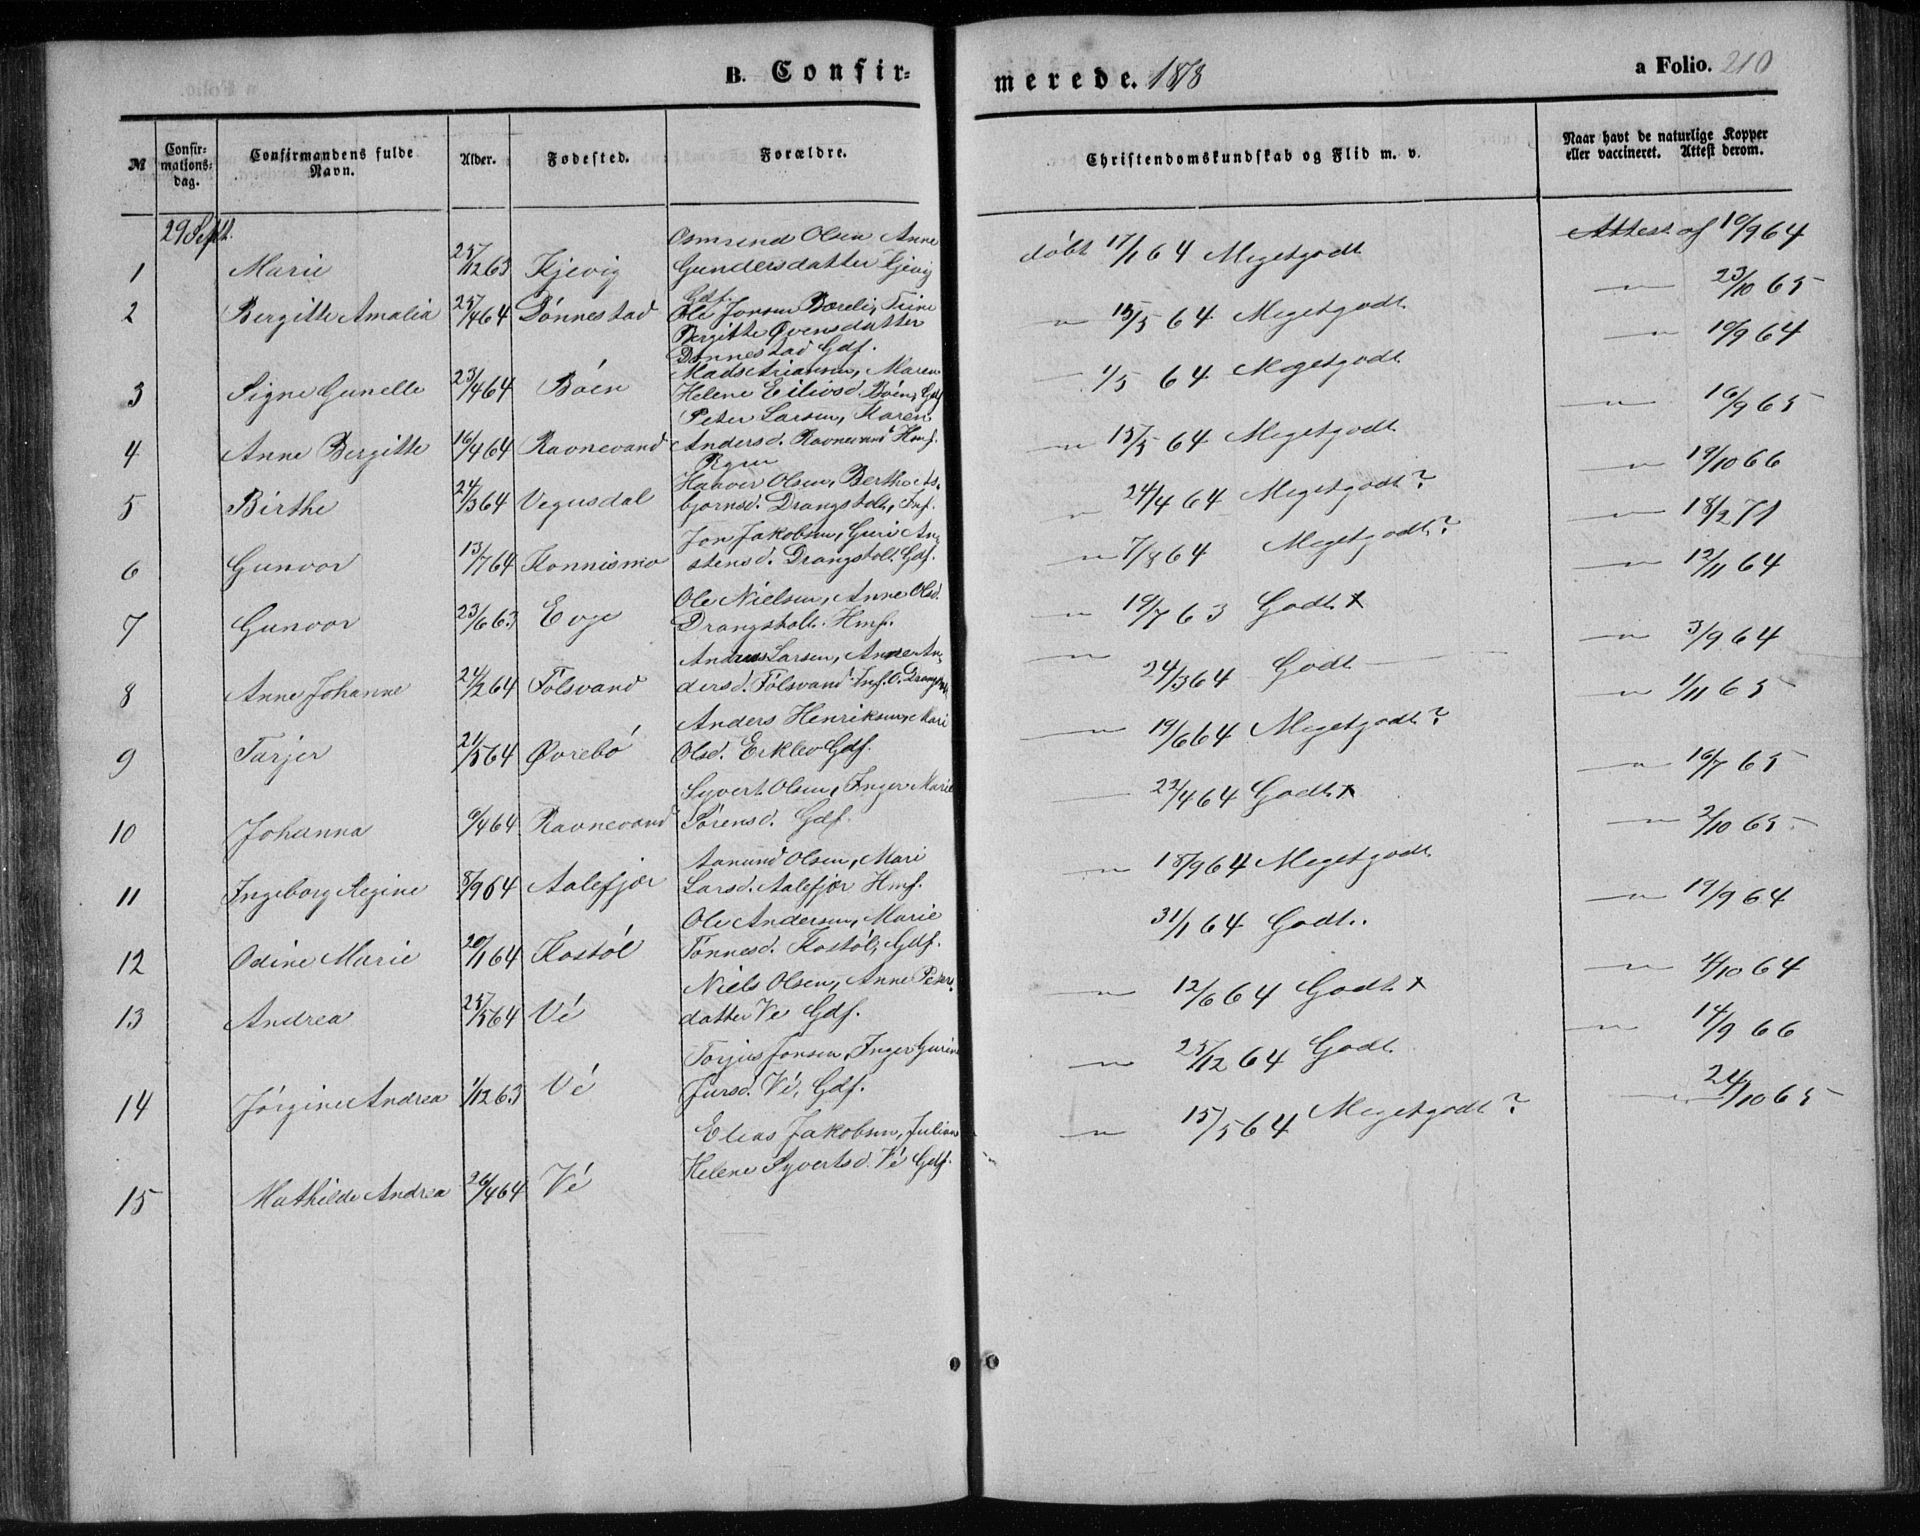 B. Confir-
merede. 1878
a Folio. 210
№
Confir-
mations-
dag.
Confirmandens fulde
Navn.
Alder.
Fødested.
Forældre.
Christendomskundskab og Flid m. v.
Naar havt de naturlige Kopper
eller vaccineret. Attest derom.
29 Sept.
1 Marie 25/12 63 Kjevig
Osmund Olsen Anne
Gundersdatter Kjevig
Gdf.
døbt 17/1 64 Megetgodt
Attest af 19/9 64
2 Bergitte Amalia 25/4 64 Dønnestad
Ole Jonsen Boreli, Trine
Bergitte Ovensdatter
Dønnestad Gdf.
" 15/5 64 Megetgodt
" 23/10 65
3 Signe Gunelle 23/4 64 Bøen
Mads Ariansen, Maren
Helene Eilivsd. Bøen, Gdf
1/5 64 Megetgodt
" 19/9 64
4 Anne Bergitte 16/4 64 Ravnevand
Peter Larsen, Karen
Andersd. Ravnevand Hmf.
" 15/5 64 Megetgodt
" 16/9 65
5 Birthe 24/3 64 Vegusdal
Haaver Olsen, Berthe As-
bjornsd. Drangsholt, Inf.
" 24/4 64 Megetgodt?
" 19/10 66
6 Gunvor 13/7 64 Konnismo
Jon Jakobsen, Guri An-
stensd. Drangsholt Gdf.
" 7/8 64 Megetgodt?
" 18/2 71
7 Gunvor 23/6 63 Evje
Ole Nielsen, Anne Olsd.
Drangsholt. Hmf.
" 19/7 63 Godt x
" 12/11 64
8 Anne Johanne 24/2 64 Følsvand
Andreas Larsen, Anne An-
dersd. Følsvand Inf.
" 24/3 64 Godt
" 3/9 64
9 Tarjer 21/5 64 Øvrebø
Anders Henriksen, Mari
Olsd. Erklev Gdf.
" 19/6 64 Megetgodt?
" 1/11 65
10 Johanna 9/4 64 Ravnevand
Syvert Olsen, Inger Marie
Sørensd. Gdf.
22/4 64 Godt x
" 16/7 65
11 Ingeborg Regine 8/9 64 Aalefjær
Aanund Olsen, Mari
Larsd. Aalefjær Hmf.
" 18/9 64 Megetgodt
" 2/10 65
12 Odine Marie 20/1 64 Kostøl
Ole Andersen, Marie
Tønnesd. Kostøl, Gdf.
31/1 64 Godt.
" 19/9 64
13 Andrea 25/5 64 Vé
Niels Olsen, Anne Peder-
datter Ve Gdf.
" 12/6 64 Godt x
" 4/10 64
14 Jørgine Andrea 1/12 63 Vé
Torjus Jonsen, Inger Gurine
Jursd. Vé, Gdf.
" 25/12 64 Godt
" 14/9 66
15 Mathilde Andrea 26/4 64 Vé
Elias Jakobsen, Juliane
Helene Syvertsd. Vé Gdf.
" 15/5 64 Megetgodt?
" 24/10 65